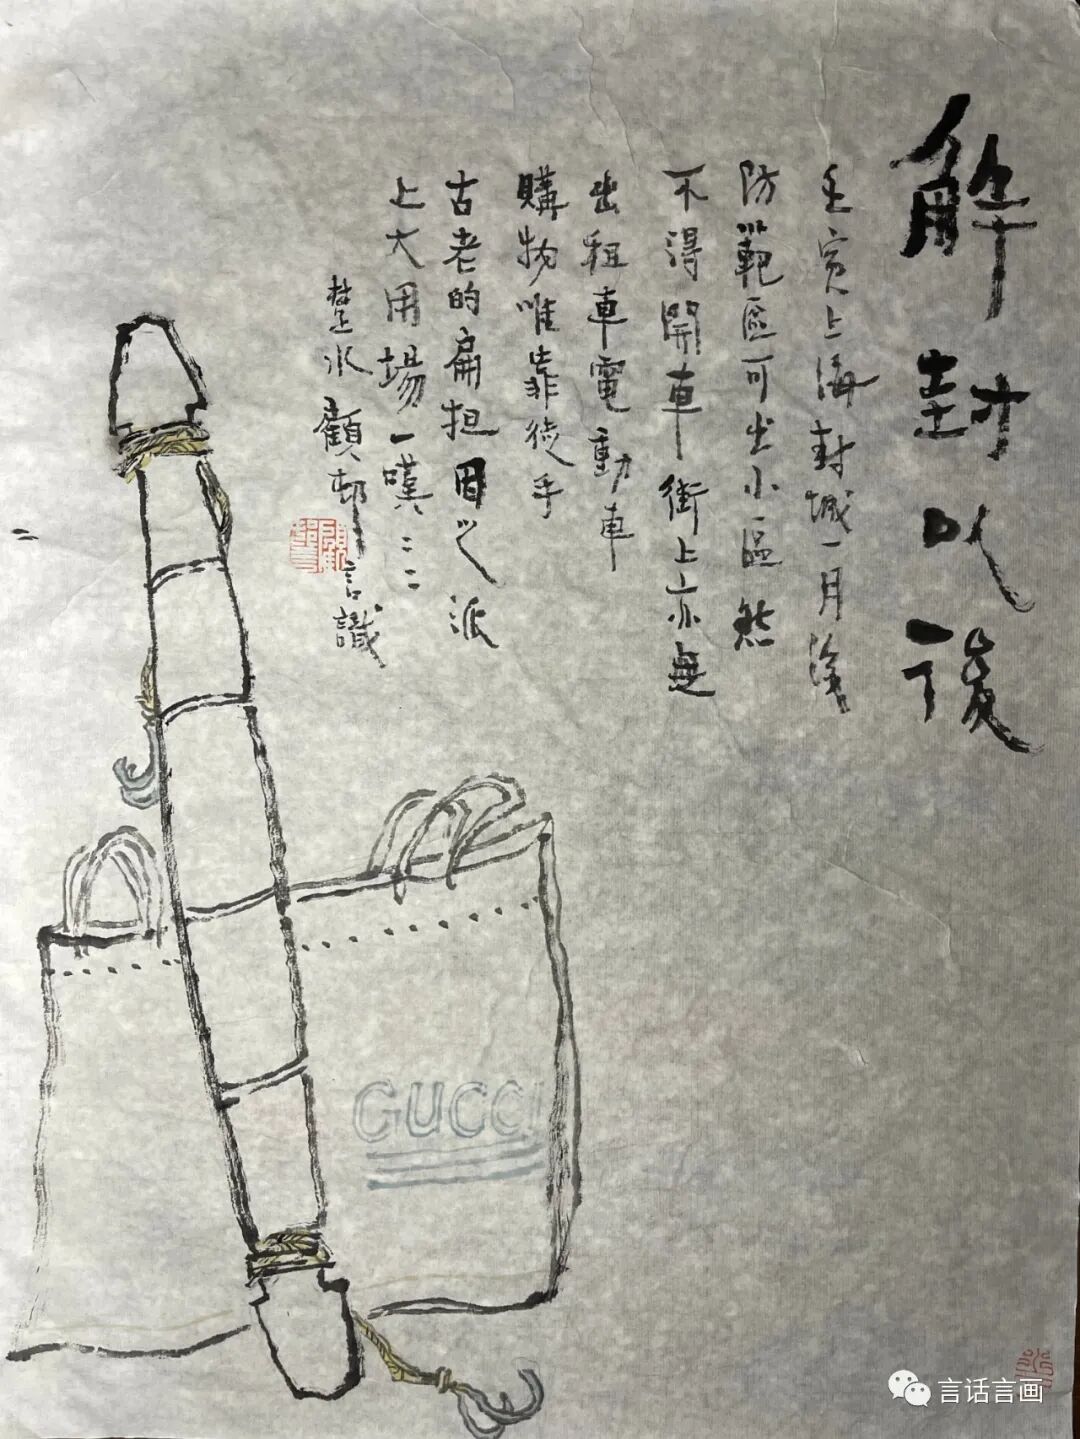 解封以後
壬寅上海封城一月後
防範區可出小區然
不得開車街上亦無
出租車電動車
購物唯靠徒手
古老的扁担因之派
上大用場一嘆二二
水顧村言識
GUCCI
言话言画